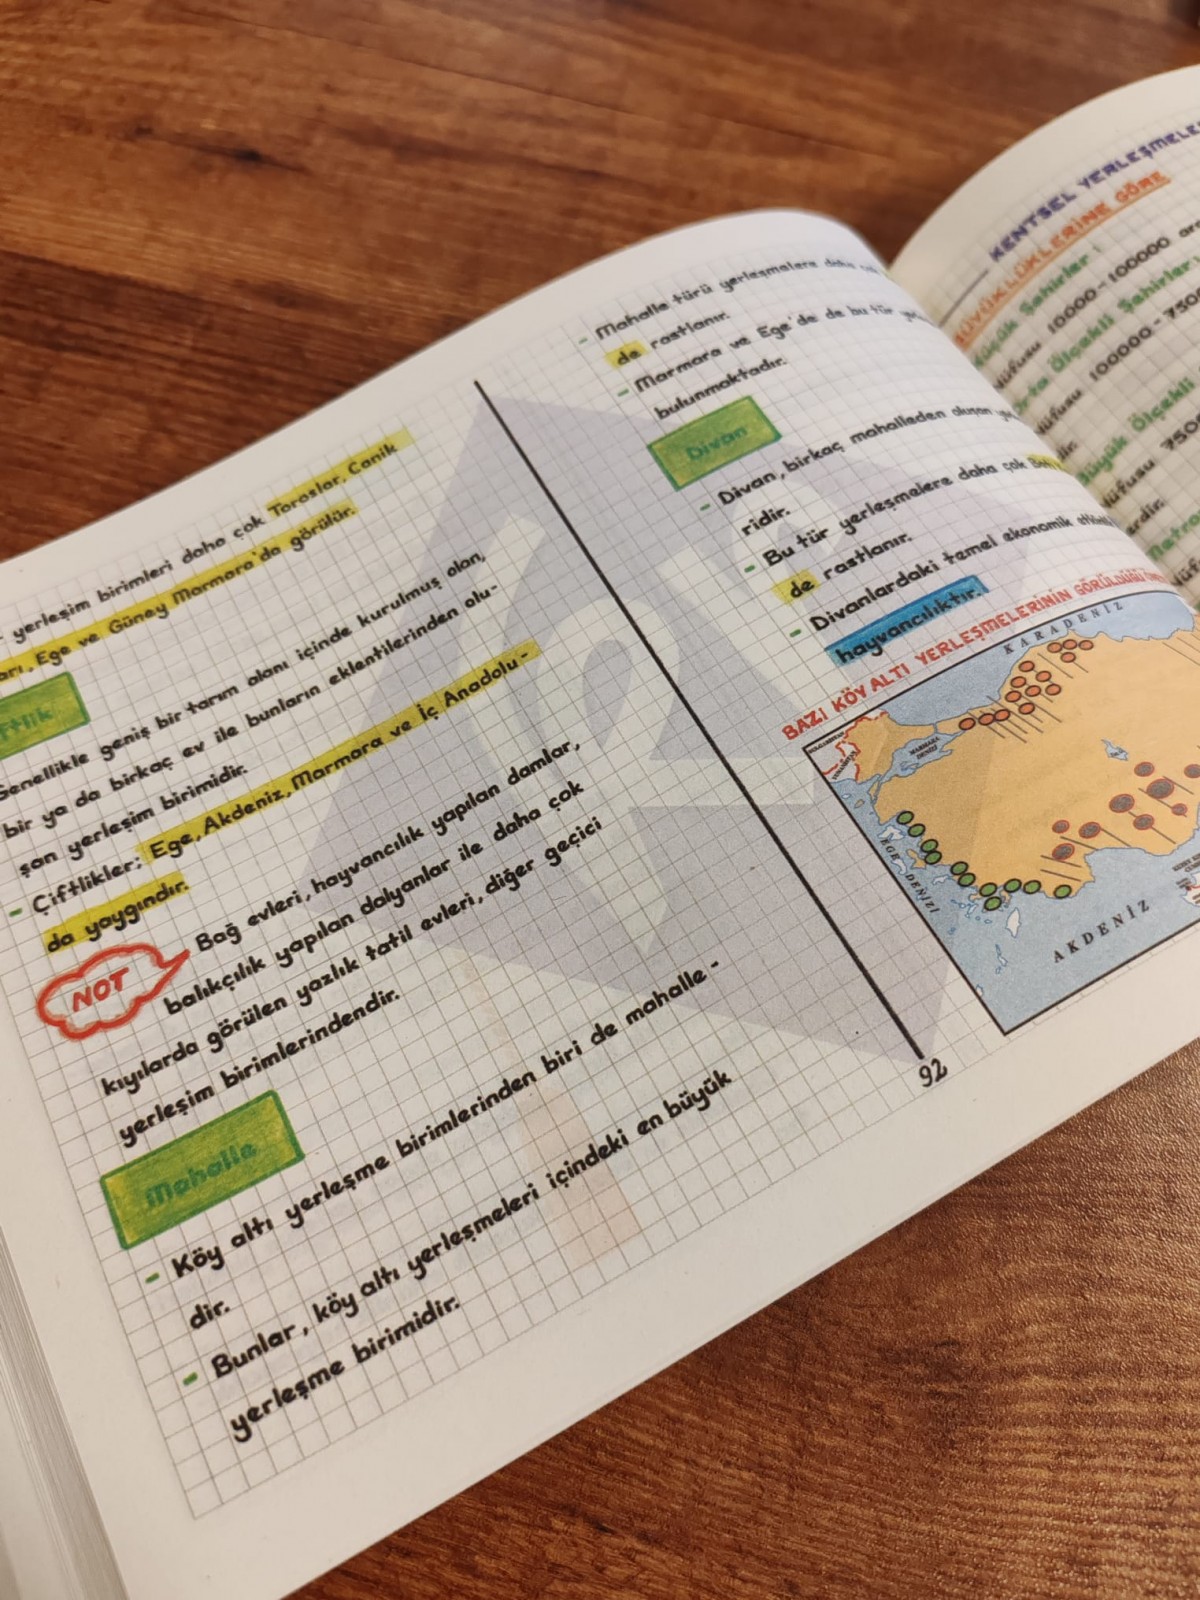 yerleşim birimleri daha çok Toroslar, Canik
Ege ve Güney Marmara'da görülür.
Genellikle geniş bir tarım alanı içinde kurulmuş olan,
bir ya da birkaç ev ile bunların eklentilerinden olu-
şan yerleşim birimidir.
- Çiftlikler; Ege, Akdeniz, Marmara ve İç Anadolu-
da yaygındır.
NOT
Bağ evleri, hayvancılık yapılan damlar,
balıkçılık yapılan dalyanlar ile daha çok
kıyılarda görülen yazlık tatil evleri, diğer geçici
yerleşim birimlerindendir.
Mahalle
- Köy altı yerleşme birimlerinden biri de mahalle-
dir.
- Bunlar, köy altı yerleşmeleri içindeki en büyük
yerleşme birimidir.
- Mahalle türü yerleşmelere daha
de rastlanır.
- Marmara ve Ege'de de bu tür
bulunmaktadır.
Divan
- Divan, birkaç mahalleden oluşan
ridir.
- Bu tür yerleşmelere daha çok
de rastlanır.
- Divanlardaki temel ekonomik
hayvancılıktır.
BAZI KÖY ALTI YERLEŞMELERİNİN GÖRÜLDÜĞÜ
KARADENİZ
MARMARA
DENİZİ
EGE DENİZİ
AKDENİZ
92
KENTSEL
BÜYÜKLÜKLERİNE GÖRE
Küçük Şehirler
Nüfusu 10000-100000
Orta Ölçekli Şehirler
Nüfusu 100000-
Büyük Ölçekli
Nüfusu